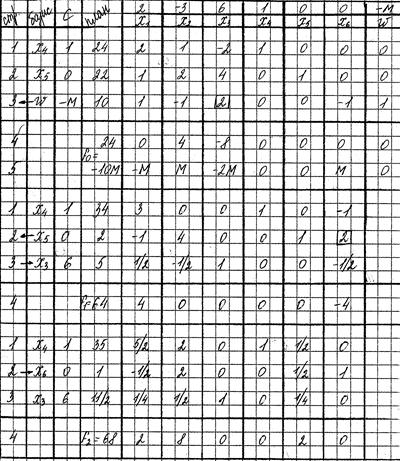 стр базис C план 2 -3 6 1 0 0 -M
x₁ x₂ x₃ x₄ x₅ x₆ w
1 x₄ 1 24 2 1 -2 1 0 0 0
2 x₅ 0 22 1 2 4 0 1 0 0
3 ← w -M 10 1 -1 2 0 0 -1 1
4 f₀= 24 0 4 -8 0 0 0 0
5 -10M -M M -2M 0 0 M 0
1 x₄ 1 34 3 0 0 1 0 -1
2 ← x₅ 0 2 -1 4 0 0 1 2
3 → x₃ 6 5 1/2 -1/2 1 0 0 -1/2
4 f₁=64 4 0 0 0 0 -4
1 x₄ 1 35 5/2 2 0 1 1/2 0
2 → x₆ 0 1 -1/2 2 0 0 1/2 1
3 x₃ 6 11/2 1/4 1/2 1 0 1/4 0
4 f₂=68 2 8 0 0 2 0